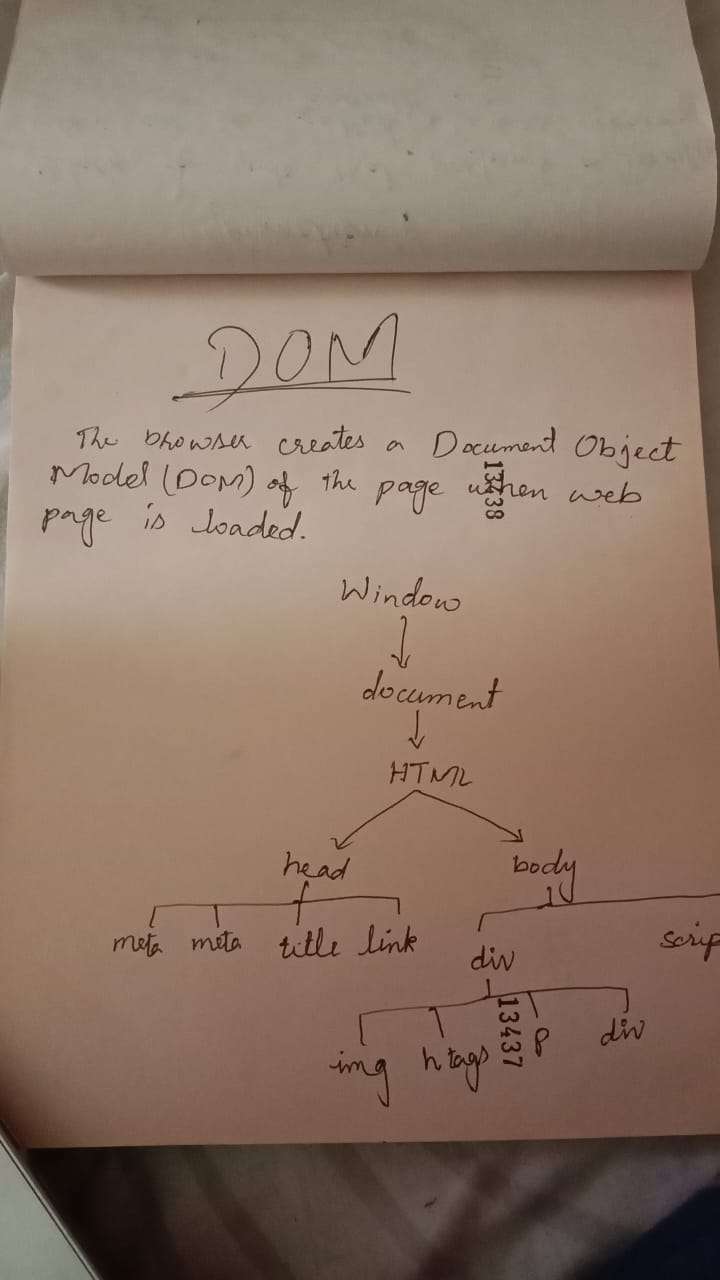 DOM
The browser creates a Document Object
Model (DOM) of the page when web
13438
page is loaded.
Window
document
HTML
head body
meta meta title link div scrip
img h tags 13437 p div